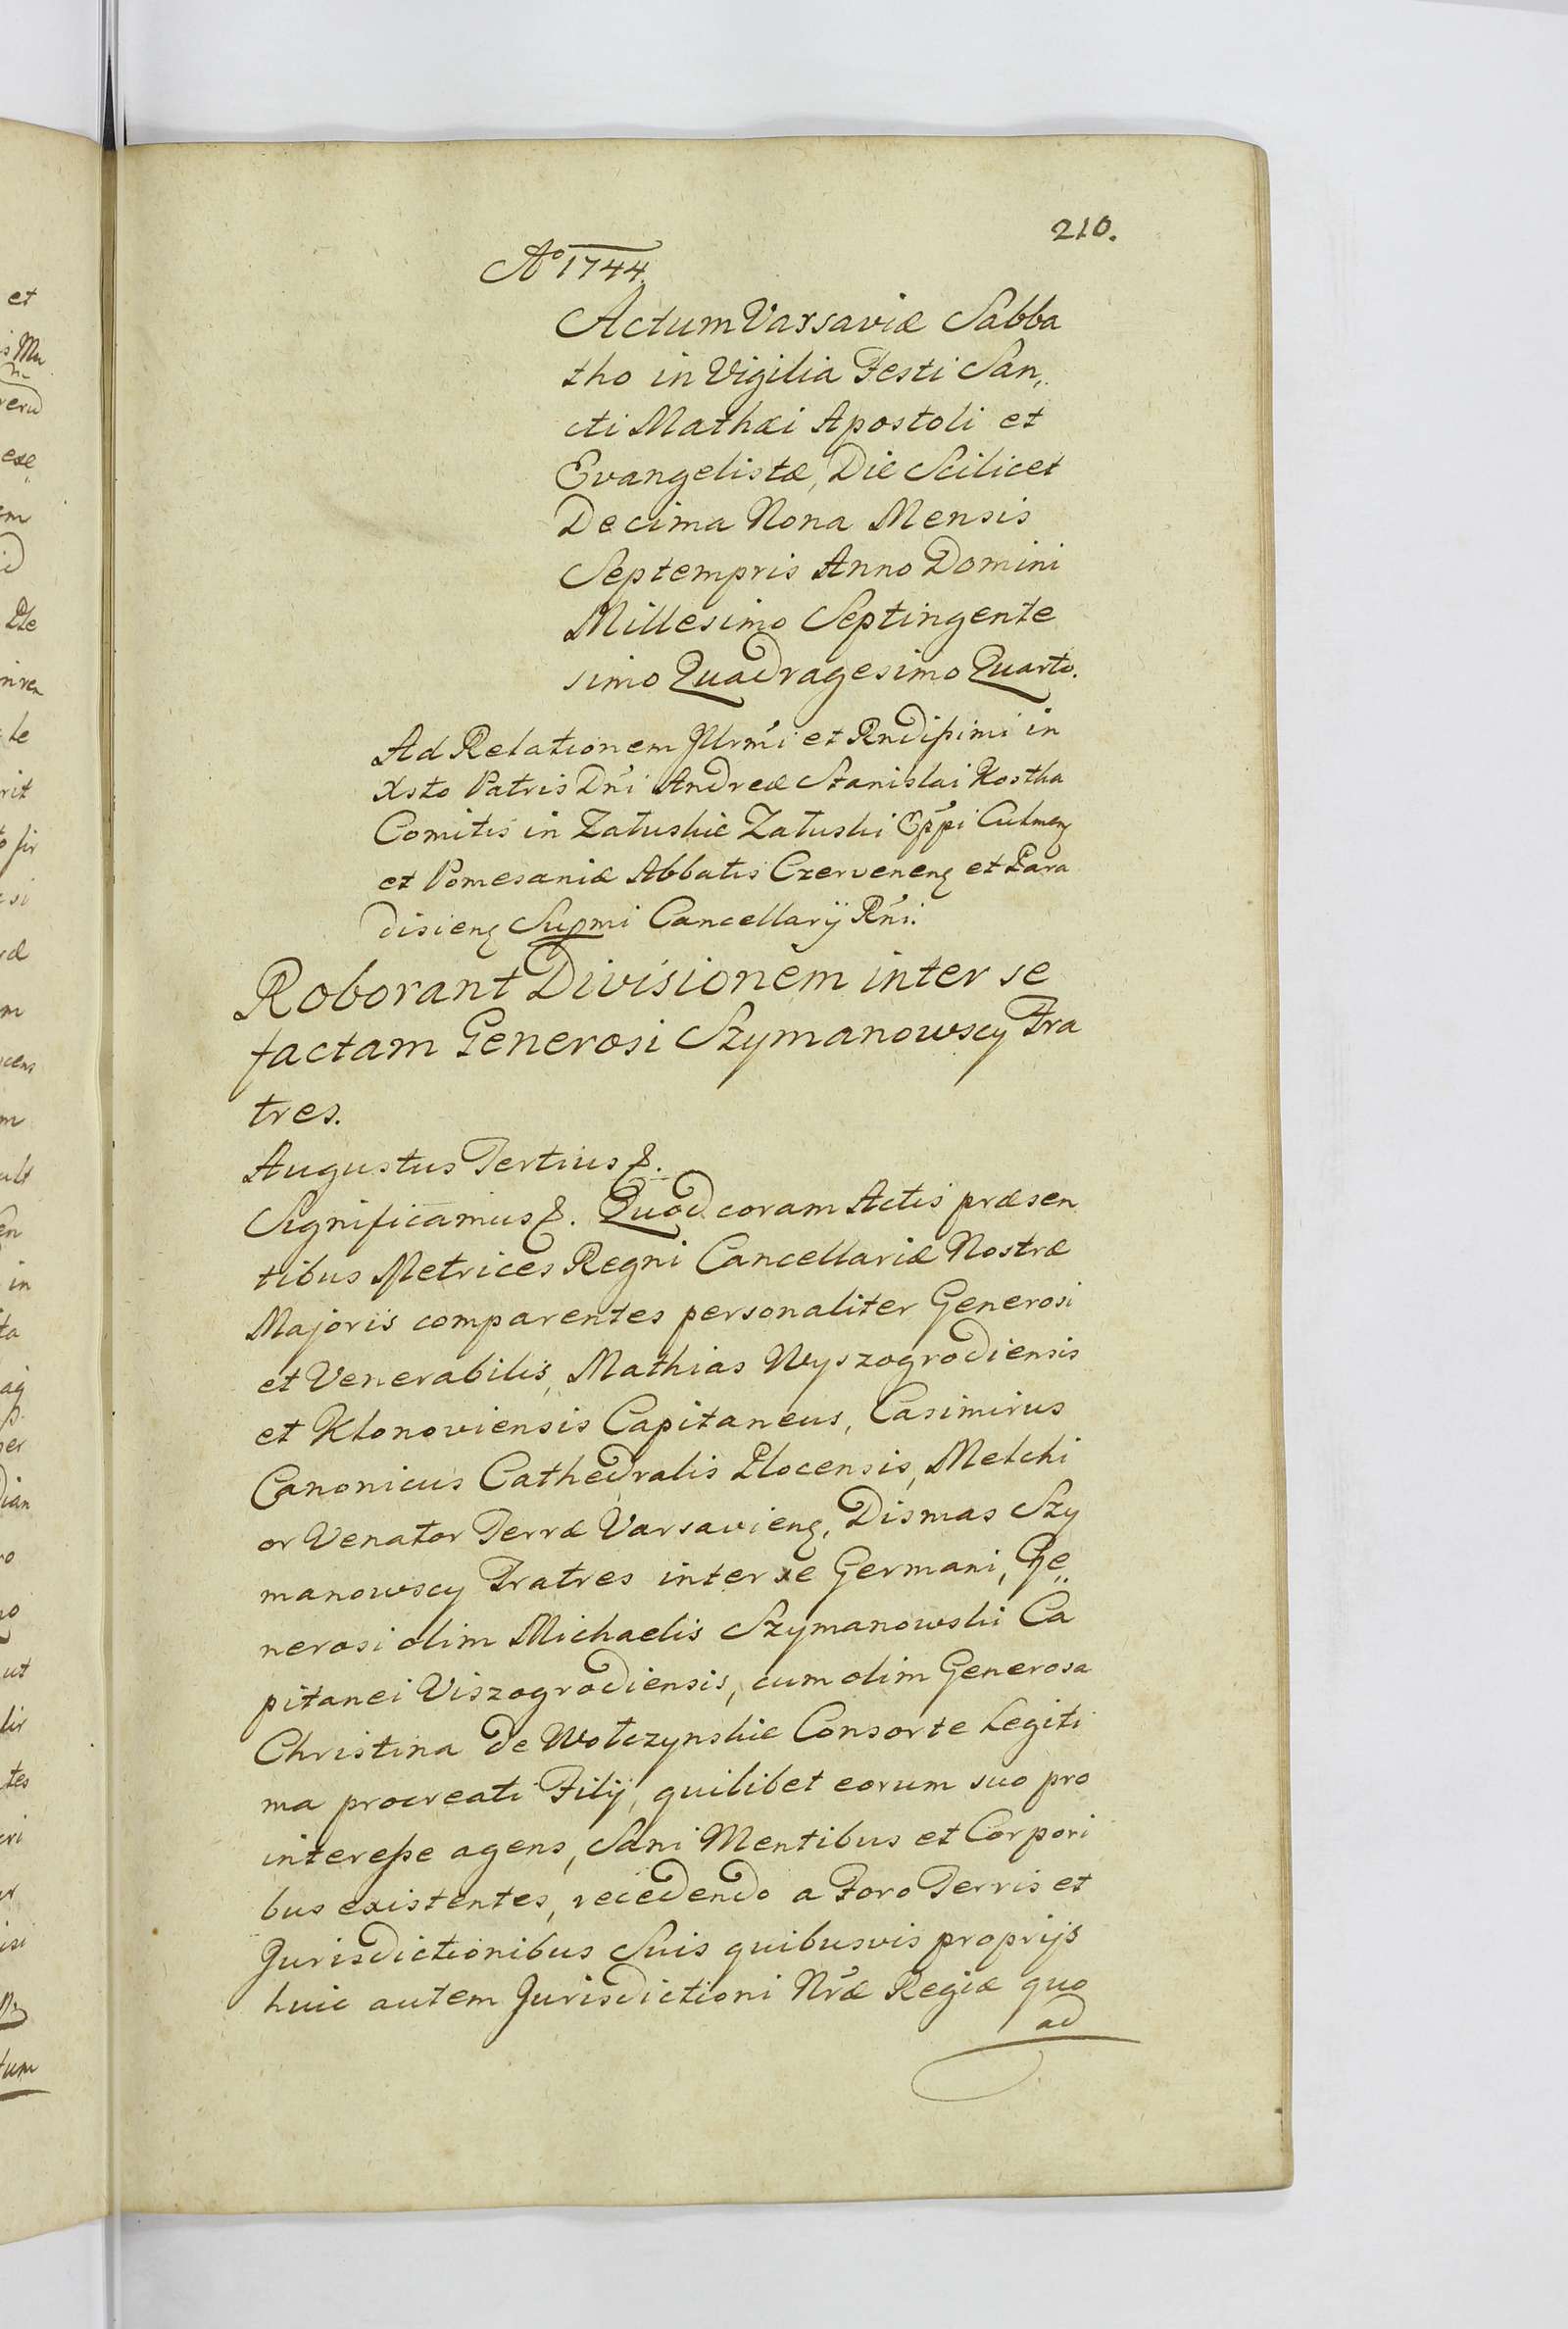 210.
Aº 1744.
Actum Varsaviæ Sabba
tho in Vigilia Festi San„
cti Mathæi Apostoli et
Evangelistæ, Die Scilicet
Decima Nona Mensis
Septempris Anno Domini
Millesimo Septingente
simo Quadragesimo Quarto.
Ad Relationem Jllrm̃i et Rndißimi in
Xsto Patris Dñi Andreæ Stanislai Kostka
Comitis in Załuskie Załuski Epp̃i Culmenẽ
et Pomesaniæ Abbatis Czervenenẽ et Para
disienẽ Supmi Cancellarij Rñi.
Roborant Divisionem inter se
factam Generosi Szymanowscy Fra
tres.
Augustus Tertius &.
Significamus &. Quod coram Actis præsen
tibus Metrices Regni Cancellariæ Nostræ
Majoris comparentes personaliter Generosi
et Venerabilis, Mathias Wyszogrodiensis
et Klonoviensis Capitaneus, Casimirus
Canonicus Cathedralis Plocensis, Melchi
or Venator Terræ Varsavienẽ, Dismas Szy
manowscy Fratres inter se Germani, Ge„
nerosi olim Michaelis Szymanowski Ca
pitanei Viszogrodiensis, cum olim Generosa
Christina de Wołczynskie Consorte Legiti
ma procreati Filij, quilibet eorum suo pro
intereße agens, Sani Mentibus et Corpori
bus existentes, recedendo a Foro Terris et
Jurisdictionibus Suis quibusvis proprijs
huic autem Jurisdictioni Nræ̃ Regiæ quo
ad